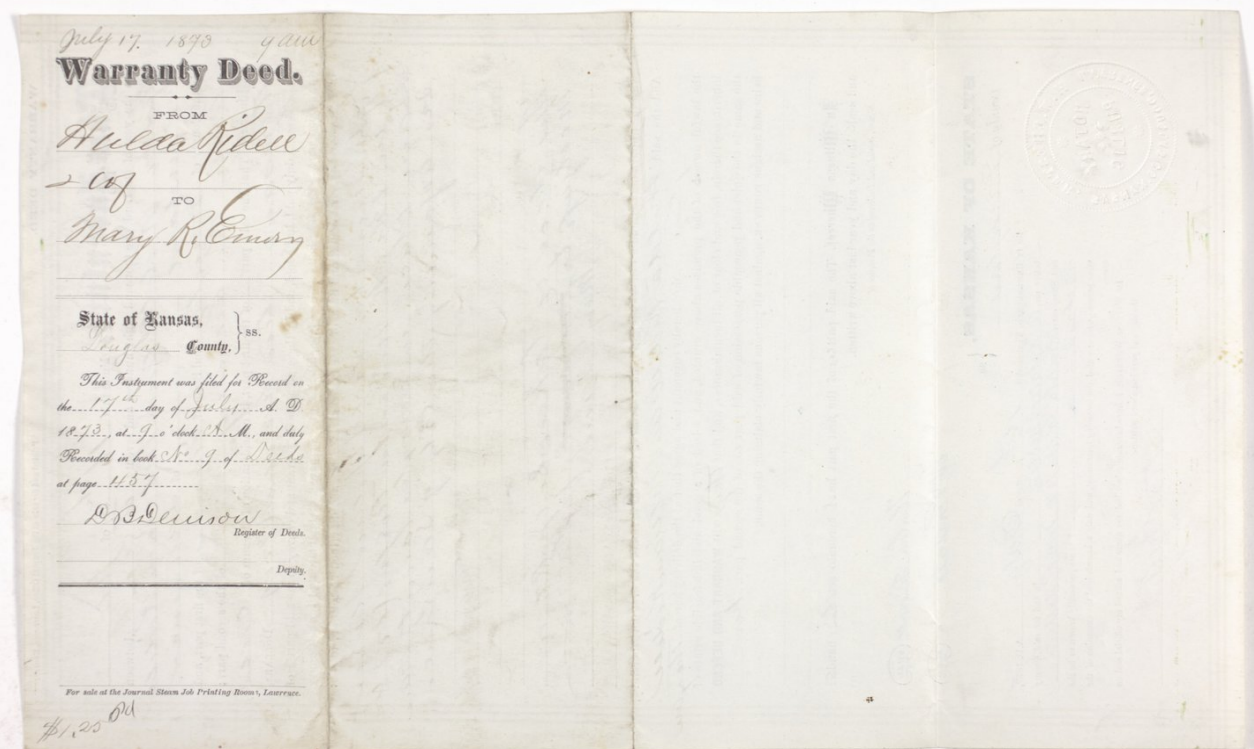 July 17. 1873 9 am
Warranty Deed.
FROM
Hulda Ridell
TO
Mary R. Emery
State of Kansas,
Douglas County, } ss.
This Instrument was filed for Record on
the 17th day of July A. D.
1873, at 9 o'clock A M., and duly
Recorded in book No 9 of Deeds
at page 457
Denison
Register of Deeds.
Deputy.
For sale at the Journal Steam Job Printing Rooms, Lawrence.
$1.25 Pd